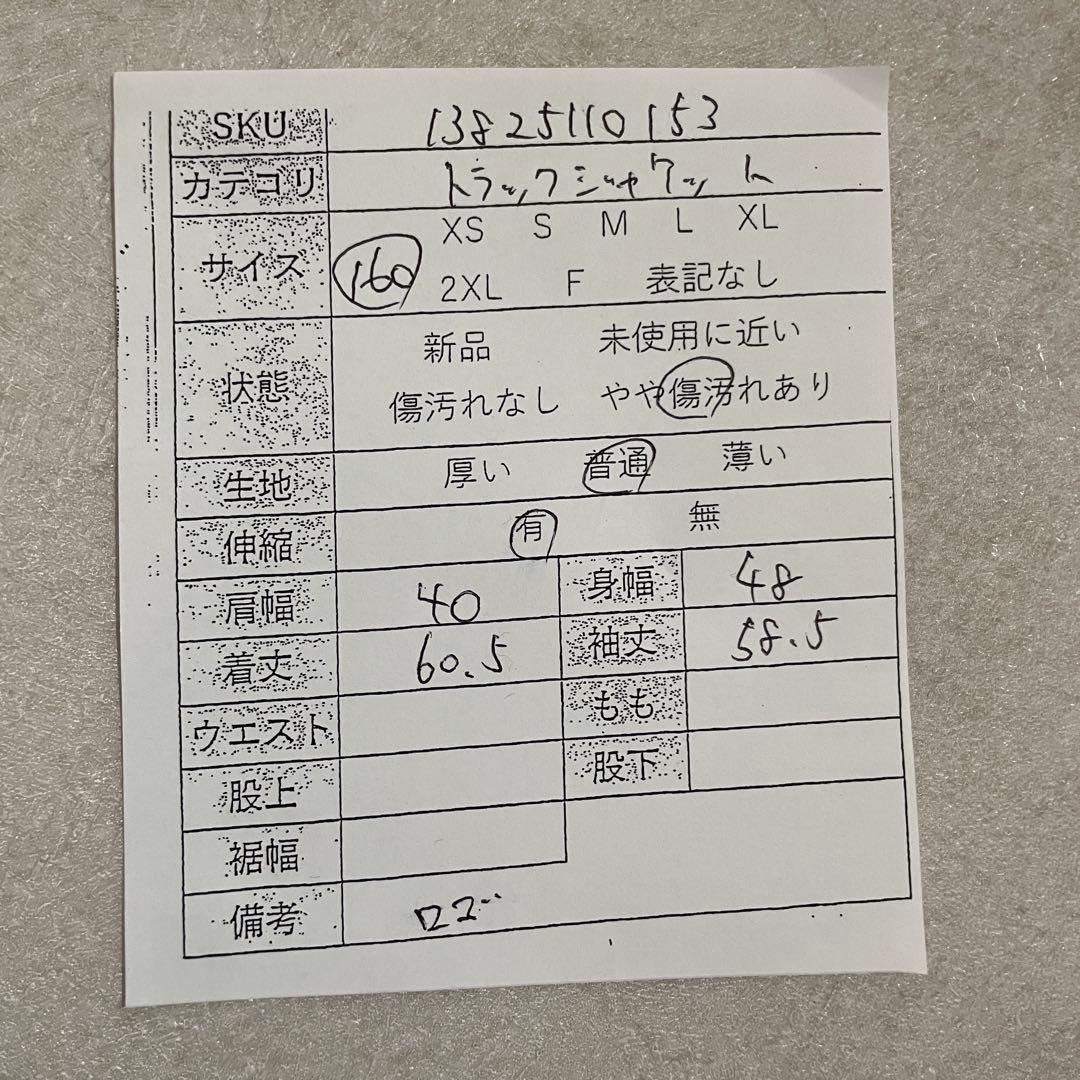 SKU 13825110153
カテゴリ トラックジャケット
サイズ XS S M L XL
160 2XL F 表記なし
状態 新品 未使用に近い
傷汚れなし やや傷汚れあり
生地 厚い 普通 薄い
伸縮 有 無
肩幅 40 身幅 48
着丈 60.5 袖丈 58.5
ウエスト もも
股上 股下
裾幅
備考 ロゴ